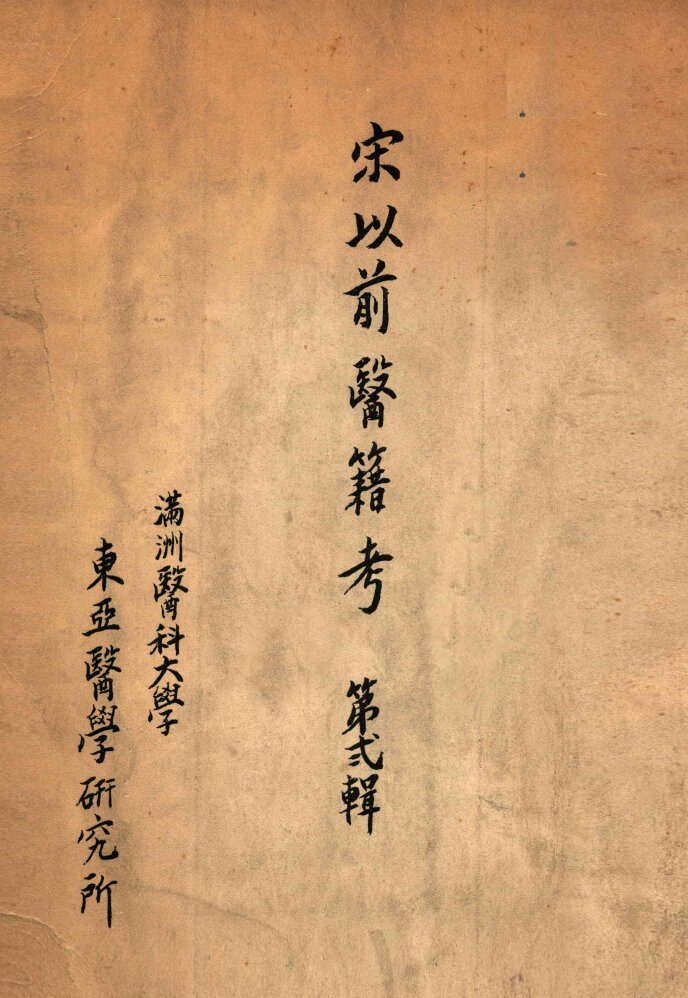 宋以前醫籍考　第弍輯
滿洲醫科大學
東亞醫學研究所